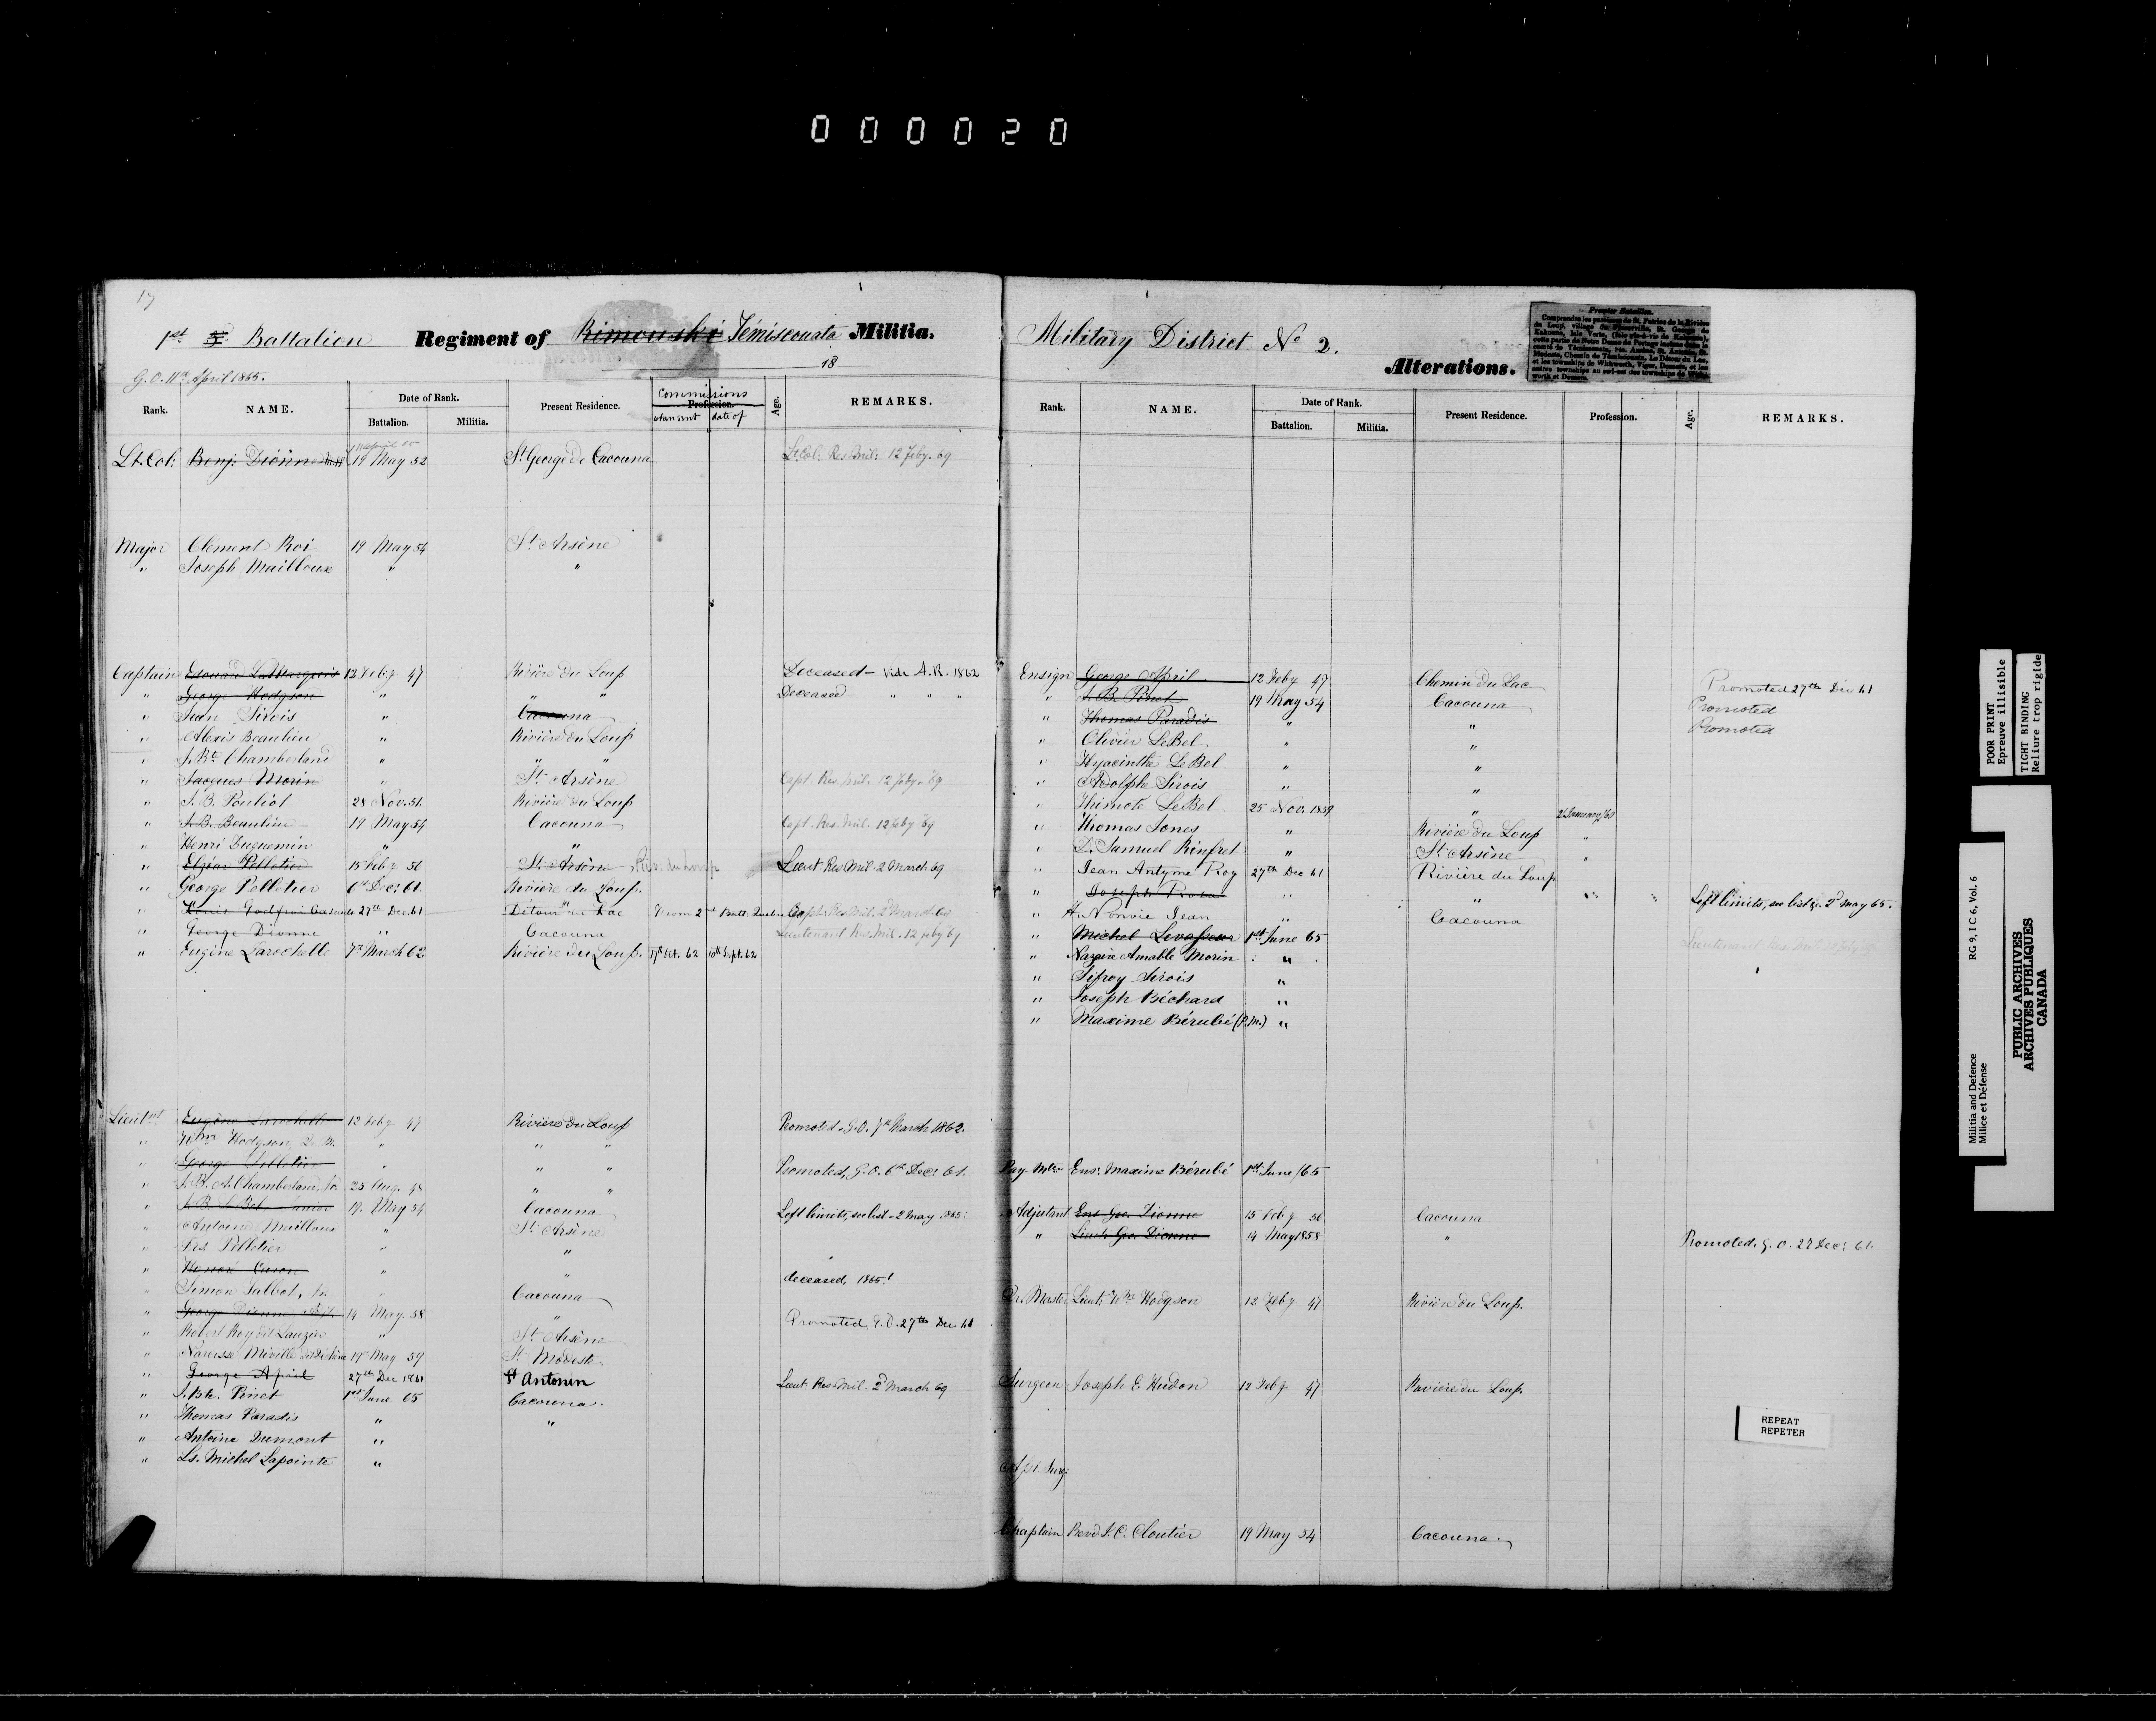 000020
17
1st Battalion Regiment of Rimouski Témiscouata Militia.
18
G.O. 11th April 1865.
Rank. NAME. Date of Rank. Battalion. Militia. Present Residence. Commissions Profession. when sent date of Age. REMARKS.
11 April 65
Lt. Col. Benj. Dionne 19 May 52 St George de Cacouna Lt. Col. Res. Mil. 12 Feby. 69
Major Clement Roi 19 May 54 St Arsène
" Joseph Mailloux " "
Captain Edouard LeMarquis 12 Feby 47 Rivière du Loup Deceased - Vide A.R. 1862
" George Hodgson " " " Deceased " " "
" Jean Sirois " Cacouna
" Alexis Beaulieu " Rivière du Loup
" J. Bte Chamberland " " "
" Jacques Morin " St Arsène Capt. Res. Mil. 12 Feby. 69
" J. B. Pouliot 28 Nov. 51. Rivière du Loup
" J. B. Beaulieu 19 May 54 Cacouna Capt. Res. Mil. 12 Feby 69
" Henri Duquemin " "
" Elzéar Pelletier 15 Feby 56 St. Arsène Riv. du Loup Lieut. Res. Mil. 2 March 69
" George Pelletier 6th Decr 61. Rivière du Loup.
" Louis Godfroi 27th Dec. 61 Détour du Lac From 2nd Batt. Capt. Res. Mil. 2d March 69
" George Dionne " Cacouna Lieutenant Res. Mil. 12 Feby 69
" Eugène Larochelle 7th March 62 Rivière du Loup. 17th Oct. 62 10th Sept. 62
Lieutnt Eugène Larochelle 12 Feby 47 Rivière du Loup Promoted - G.O. 7th March 1862.
" Wm Hodgson, Q. M. " " "
" George Pelletier " " " Promoted, G.O. 6th Decr 61.
" J. B. A. Chamberland, Jr. 25 Aug. 48 " "
" J. B. LeBel Junior 19. May 54 Cacouna Left limits, see list - 2 May 1865.
" Antoine Mailloux " St Arsène
" Frs Pelletier " "
" Honoré Caron " " deceased, 1865!
" Simon Talbot, Jr. " Cacouna
" George Dionne Adjt. 14 May. 58 " Promoted, G.O. 27th Dec 61
" Robert Roy dit Lauzier " St Arsène
" Narcisse Miville dit 19th May 59 St Modeste.
" George April 27th Dec 1861 St Antonin Lieut. Res. Mil. 2d March 69
" J. Bte. Pinet 1st June 65 Cacouna.
" Thomas Paradis " "
" Antoine Dumont "
" Ls. Michel Lapointe "
Military District No 2.
Alterations.
Premier Bataillon.
Comprendra les paroisses de St. Patrice de la Rivière du Loup, village de Fraserville, St. George de Kakouna, Isle Verte,
Rank. NAME. Date of Rank. Battalion. Militia. Present Residence. Profession. Age. REMARKS.
Ensign George April 12 Feby 47 Chemin du Lac Promoted 27th Dec 61
" J. B. Pinet 19 May 54 Cacouna Promoted
" Thomas Paradis " " Promoted
" Olivier LeBel " "
" Hyacinthe LeBel " "
" Adolphe Sirois " "
" Thimoté LeBel 25 Nov. 1859 " 2 January/60
" Thomas Jones " Rivière du Loup "
" D. Samuel Rinfret " St. Arsène "
" Jean Antyme Roy 27th Dec 61 Rivière du Loup
" Joseph " " " " Left limits, see list G. 2d May 65.
" Jean " Cacouna
" Michel Levasseur 1st June 65 Lieutenant Res. Mil.
" Nazaire Amable Morin "
" Sifroy Sirois "
" Joseph Béchard "
" Maxime Bérubé (P.M.) "
Pay-Mter Ens. Maxime Bérubé 1st June/65
Adjutant Ens Geo. Dionne 15 Feby 56 Cacouna
" Lieut. Geo. Dionne 14 May 1858 " Promoted. G.O. 27 Decr 61.
Qr. Master Lieut. Wm Hodgson 12 Feby 47 Rivière du Loup.
Surgeon Joseph E. Hudon 12 Feby 47 Rivière du Loup.
Asst. Surg:
Chaplain Revd J. C. Cloutier 19 May 54 Cacouna
POOR PRINT
Epreuve illisible
TIGHT BINDING
Reliure trop rigide
Militia and Defence
Milice et Défense
RG 9, I C 6, Vol. 6
PUBLIC ARCHIVES
ARCHIVES PUBLIQUES
CANADA
REPEAT
REPETER